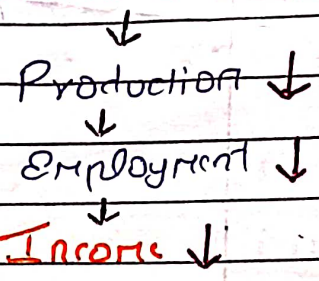 ↓
Production ↓
↓
Employment ↓
↓
Income ↓